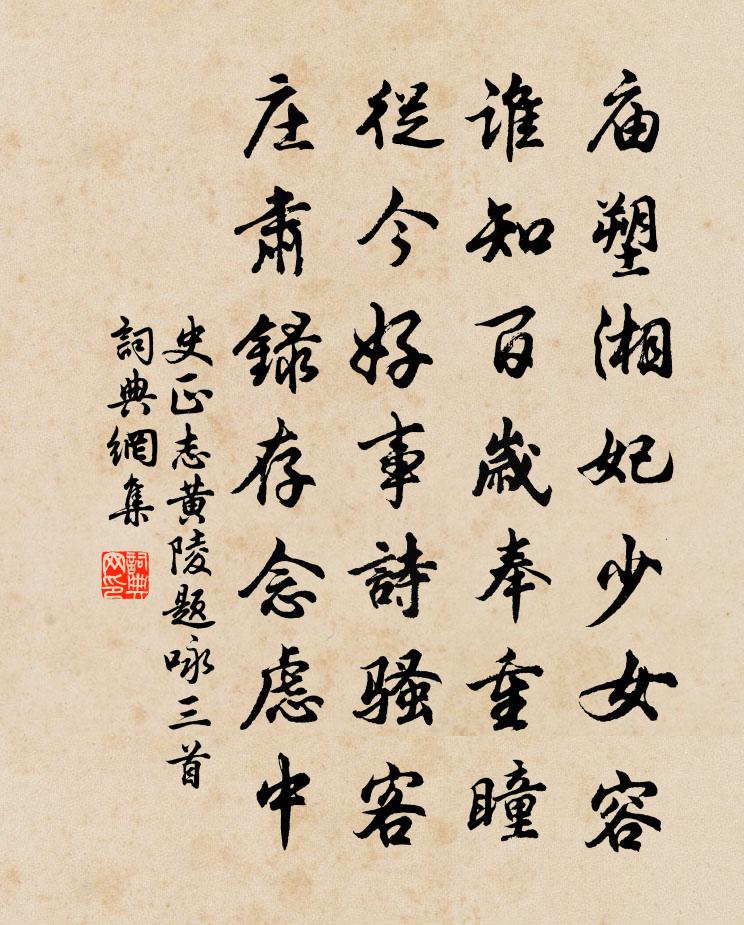 庙塑湘妃少女容
谁知百歳奉重瞳
從今好事詩骚客
庄肅録存念慮中
史正志黄陵题咏三首
詞典網集
詞典网印